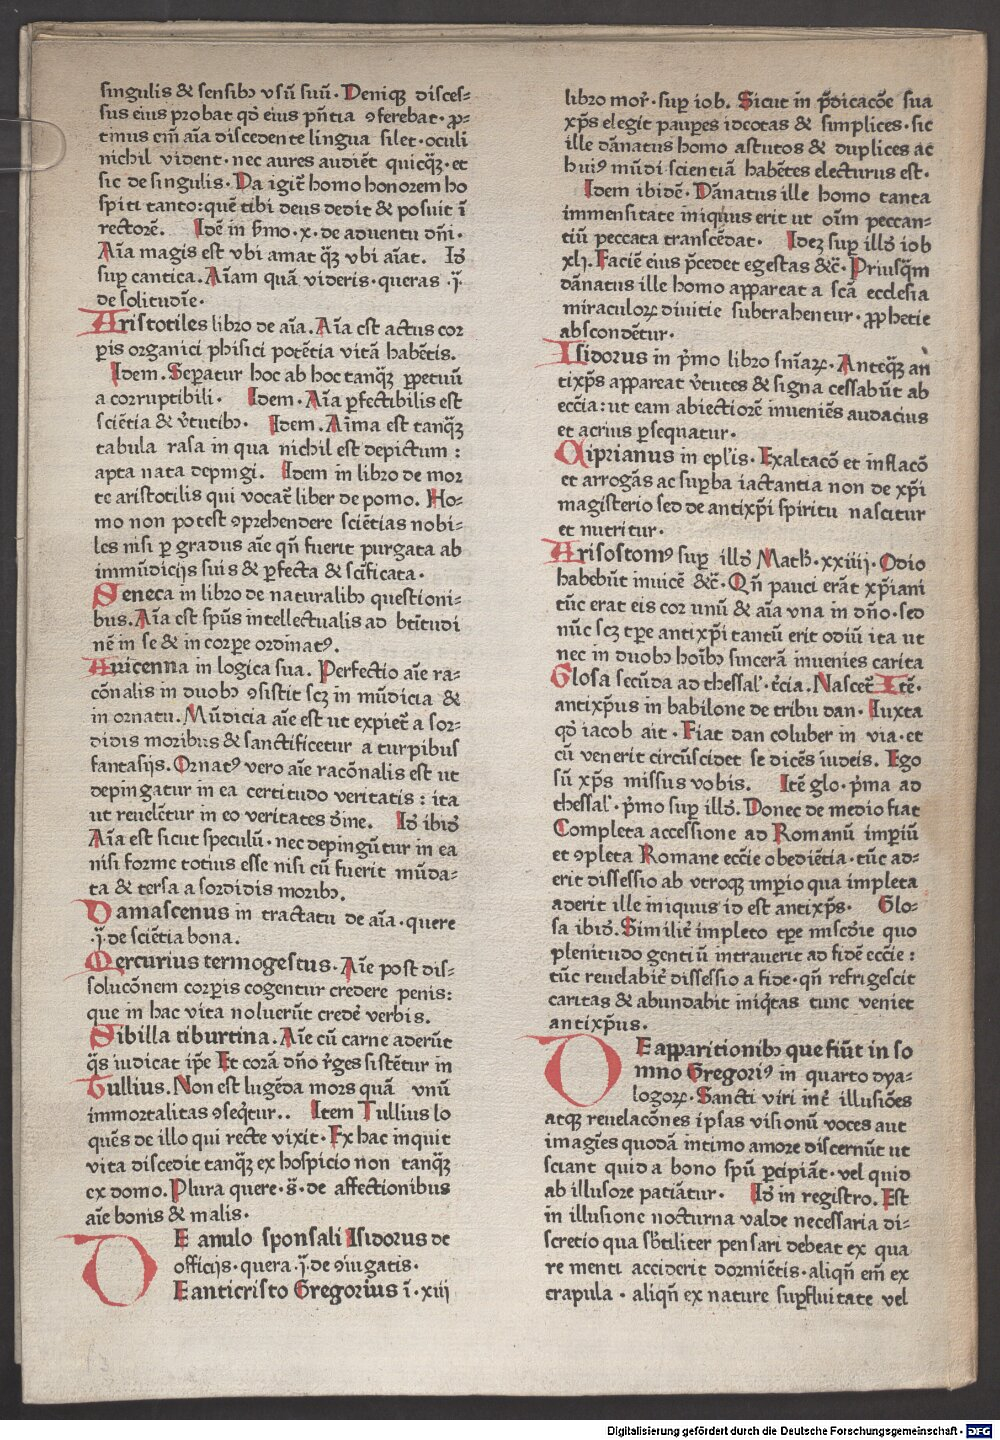 singulis & sensibꝫ vsū suū. Deniqꝫ disces⸗
sus eius probat qđ eius pn̄tia ꝯferebat. ꝓ⸗
timus em̄ aīa discedente lingua silet. oculi
nichil vident. nec aures audiēt quicqꝫ. et
sic de singulis. Da igit̄ homo honorem ho
spiti tanto: quē tibi deus dedit & posuit ī
rectorē. Idē in p̄mo. x. de aduentu dn̄i.
Aīa magis est vbi amat qꝫ vbi aīat. Id̄
sup̱ cantica. Aīam quā videris. queras .j̄.
de solitudīe.
Aristotiles libro de aīa. Aīa est actus cor
p̱is organici phisici potētia vitā habētis.
Idem. Sep̱atur hoc ab hoc tanqꝫ ꝑpetuū
a corruptibili. Idem. Aīa ꝑfectibilis est
sciētia & v̄tutibꝫ. Idem. Aīma est tanqꝫ
tabula rasa in qua nichil est depictum :
apta nata depingi. Idem in libro de mor
te aristotilis qui vocat̄ liber de pomo. Ho⸗
mo non potest ꝯprehendere sciētias nobi⸗
les nisi ꝑ gradus aīe qn̄ fuerit purgata ab
immūdicijs suis & ꝑfecta & sc̄ificata.
Seneca in libro de naturalibꝫ questioni⸗
bus. Aīa est sp̄us intellectualis ad bt̄itudi
nē in se & in corp̱e ordinatꝰ.
Auicenna in logica sua. Perfectio aīe ra⸗
cōnalis in duobꝫ ꝯsistit scꝫ in mūdicia &
in ornatu. Mūdicia aīe est ut expiet̄ a sor⸗
didis moribus & sanctificetur a turpibus
fantasijs. Ornatꝰ vero aīe racōnalis est ut
depingatur in ea certitudo veritatis : ita
ut reuelētur in eo veritates d̄ine. Id̄ ibid̄
Aīa est sicut speculū. nec depingūtur in ea
nisi forme totius esse nisi cū fuerit mūda⸗
ta & tersa a sordidis moribꝫ.
Damascenus in tractatu de aīa. quere
.j̄. de sciētia bona.
Mercurius termogestus. Aīe post dis⸗
solucōnem corp̱is cogentur credere penis:
que in hac vita noluerūt credē verbis.
Sibilla tiburtina. Aīe cū carne aderūt
q̄s iudicat ip̄e Et corā dn̄o r̄ges sistētur in
Tullius. Non est lugēda mors quā vnū
immortalitas ꝯseq̄tur.. Item Tullius lo
quēs de illo qui recte vixit. Ex hac inquit
vita discedit tanqꝫ ex hospicio non tanqꝫ
ex domo. Plura quere. s̄. de affectionibus
aīe bonis & malis.
DE anulo sponsali Isidorus de
officijs. quera .j̄. de ꝯiugatis.
E anticristo Gregorius ī. xiij
libro mor̄. sup̱ iob. Sicut in p̄dicacōe sua
xp̄s elegit paup̱es idcotas & simplices. sic
ille dānatus homo astutos & duplices ac
huiꝰ mūdi scientiā habētes electurus est.
Idem ibidē. Dānatus ille homo tanta
immensitate iniquus erit ut oīm peccan⸗
tiū peccata transcēdat. Ideꝫ sup̱ illd̄ iob
xlj. Faciē eius p̄cedet egestas &c̄. Priusqꝫm
dānatus ille homo appareat a scā ecclesia
miraculoꝝ diuitie subtrahentur. ꝓphetie
abscondētur.
Isidorus in p̄mo libro sn̄iaꝝ. Anteqꝫ an
tixp̄s appareat v̄tutes & signa cessabūt ab
ecc̄ia: ut eam abiectiorē inueniēs audacius
et acrius ꝑsequatur.
Ciprianus in epl̄is. Exaltacō et inflacō
et arrogās ac sup̱ba iactantia non de xp̄i
magisterio sed de antixp̄i spiritu nascitur
et nutritur.
Crisostomꝰ sup̱ illd̄ Math̄. xxiiij. Odio
habebūt inuicē &c̄. Qn̄ pauci erāt xp̄iani
tūc erat eis cor unū & aīa vna in dn̄o. sed
nūc scꝫ tp̱e antixp̄i tantū erit odiū ita ut
nec in duobꝫ hoībꝫ sincerā inuenies carita
Glosa secūda ad thessal̄. t̄cia. Nascet̄ Itē.
antixp̄us in babilone de tribu dan. Iuxta
qđ iacob ait. Fiat dan coluber in via. et
cū venerit circūscidet se dicēs iudeis. Ego
sū xp̄s missus vobis. Itē glo. p̄ma ad
thessal̄. p̄mo sup̱ illd̄. Donec de medio fiat
Completa accessione ad Romanū imp̱iū
et ꝯpleta Romane ecc̄ie obediētia. tūc ad⸗
erit dissessio ab vtroqꝫ imp̱io qua impleta
aderit ille iniquus id est antixp̄s. Glo⸗
sa ibid̄. Similit̄ impleto tp̱e misc̄die quo
plenitudo gentiū intrauerit ad fidē ecc̄ie :
tūc reuelabit̄ dissessio a fide. qn̄ refrigescit
caritas & abundabit iniq̄tas tunc veniet
antixp̄us.
DE apparitionibꝫ que fiūt in so
mno Gregoriꝰ in quarto dya⸗
logoꝝ. Sancti viri int̄ illusiōes
atqꝫ reuelacōnes ipsas visionū voces aut
imagīes quodā intimo amore discernūt ut
sciant quid a bono spū ꝑcipiāt. vel quid
ab illusore patiātur. Id̄ in registro. Est
in illusione nocturna valde necessaria di⸗
scretio qua sb̄tiliter pensari debeat ex qua
re menti acciderit dormiētis. aliqn̄ em̄ ex
crapula. aliqn̄ ex nature sup̱fluitate vel
Digitalisierung gefördert durch die Deutsche Forschungsgemeinschaft - DFG